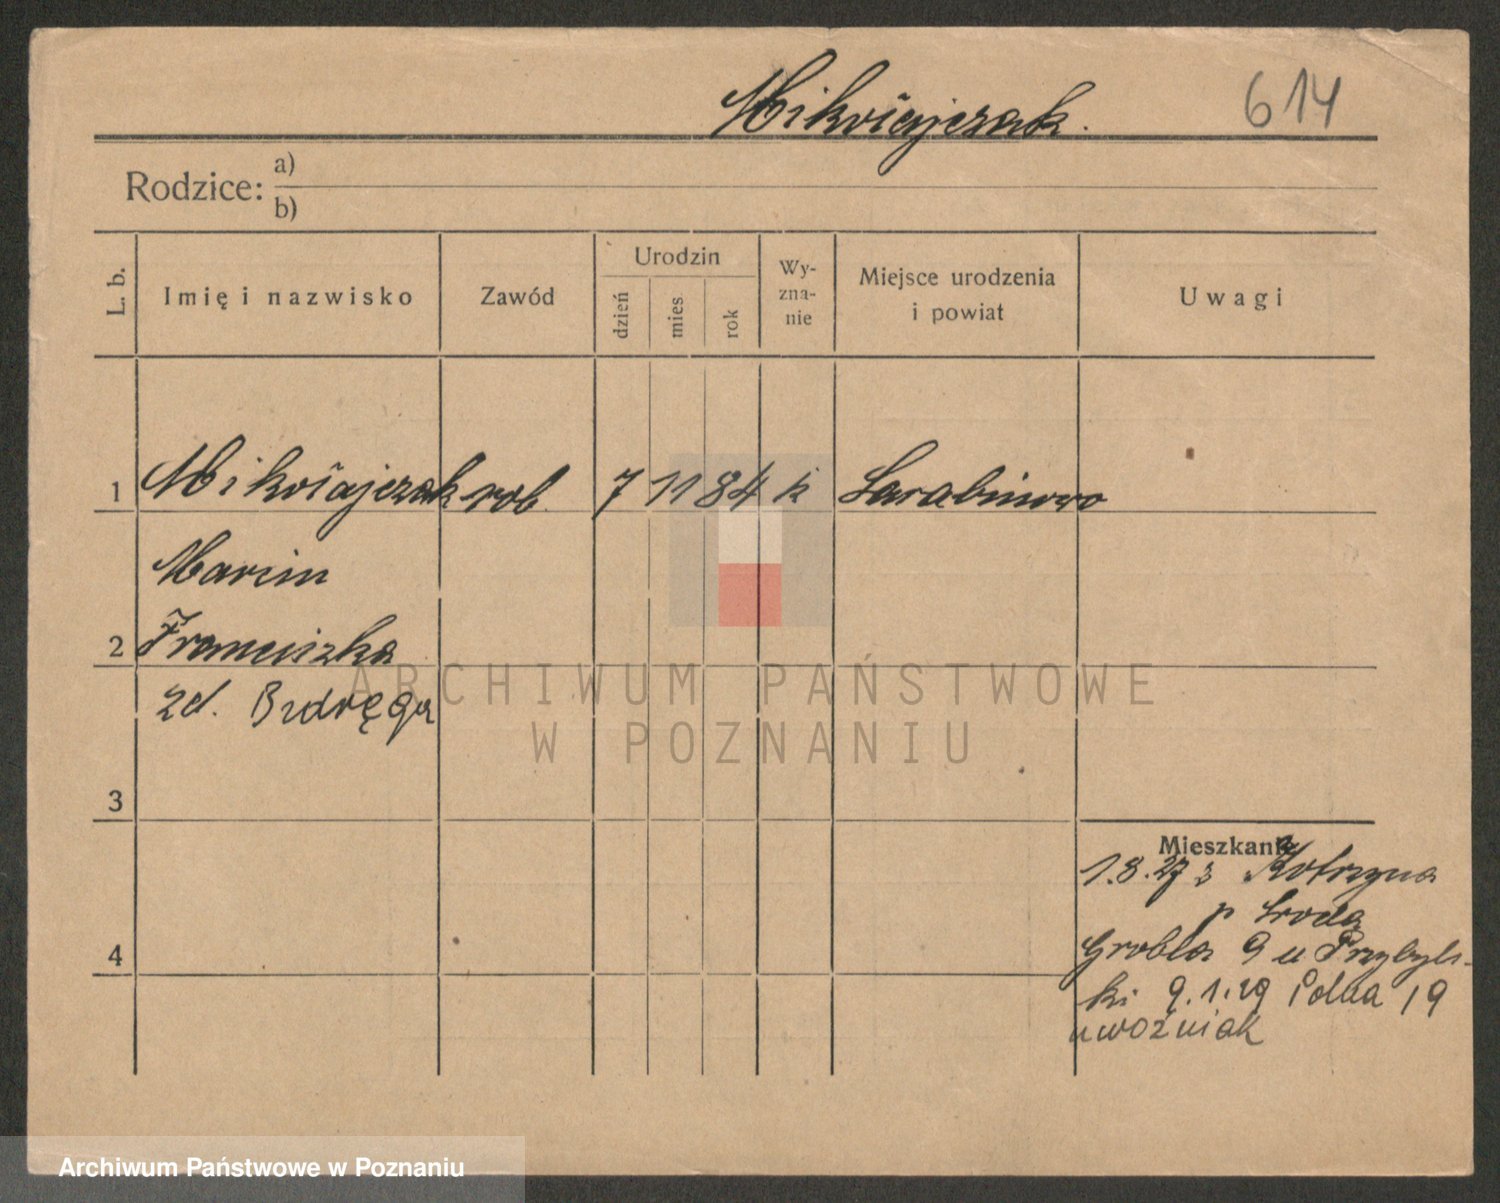 Mikołajczak.
614
Rodzice: a)
b)
L. b.
Imię i nazwisko
Zawód
Urodzin
dzień
mies
rok
Wy-
zna-
nie
Miejsce urodzenia
i powiat
Uwagi
1 Mikołajczak rob. 7 11 84 k Sarabinowo
Marcin
2 Franciszka
zd.
3
Mieszkanie
1.8.27 z
p Środa
4
Grobla 9 u Przybyls-
ki 9.1.29 19
u woźniak
ARCHIWUM PAŃSTWOWE
W POZNANIU
Archiwum Państwowe w Poznaniu